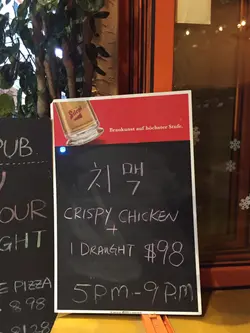 Braukunst auf höchster Stufe.
치맥
CRISPY CHICKEN
+
1 DRAUGHT $98
5PM-9PM
PUB
OUR
GHT
E PIZZA
$98
$128